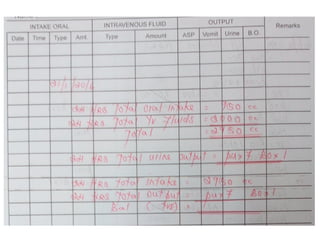 INTAKE ORAL INTRAVENOUS FLUID OUTPUT Remarks
Date Time Type Amt. Type Amount ASP Vomit Urine B.O.
24 HRS Total Oral Intake = 750 cc
24 HRS Total Iv Fluids = 2000 cc
Total = 2750 cc
24 HRS Total urine output = pux7 Box1
24 HRS Total Intake = 2750 cc
24 HRS Total Output = pux7 Box1
Bal